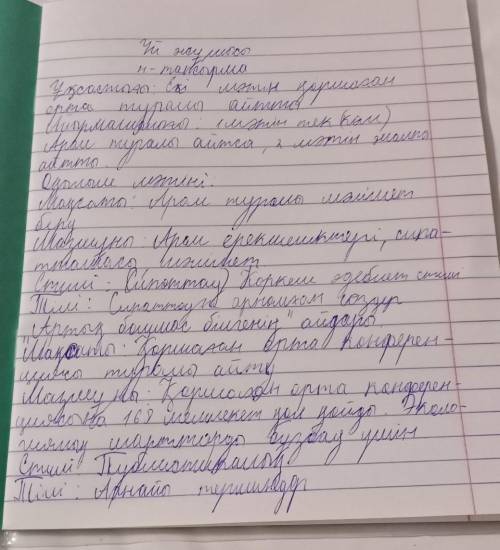 Үй жұмысы
н-тапсырма
Ұқсастығы: Екі мәтін қоршаған
орта туралы айтты
мәтін тек
Арал туралы айтса, 2 мәтін жалпы
айтты
мәтіні.
Мақсаты: Арал туралы мәлімет
беру
Мазмұны: Арал ерекшеліктері, сипа-
Стилі: (Сипаттау) Көркем әдебиет стилі
Тілі: Сипаттауға арналған сөздер
"Артық болмас білгенің" айдары.
Мақсаты: Қоршаған орта конферен-
циясы туралы айту
Мазмұны: Қоршаған орта конферен-
циясына 168 мемлекет қол қойды. Эколо-
гиялық шарттарды бұзбау үшін
Стилі Публицистикалық
Тілі: Арнайы терминдер